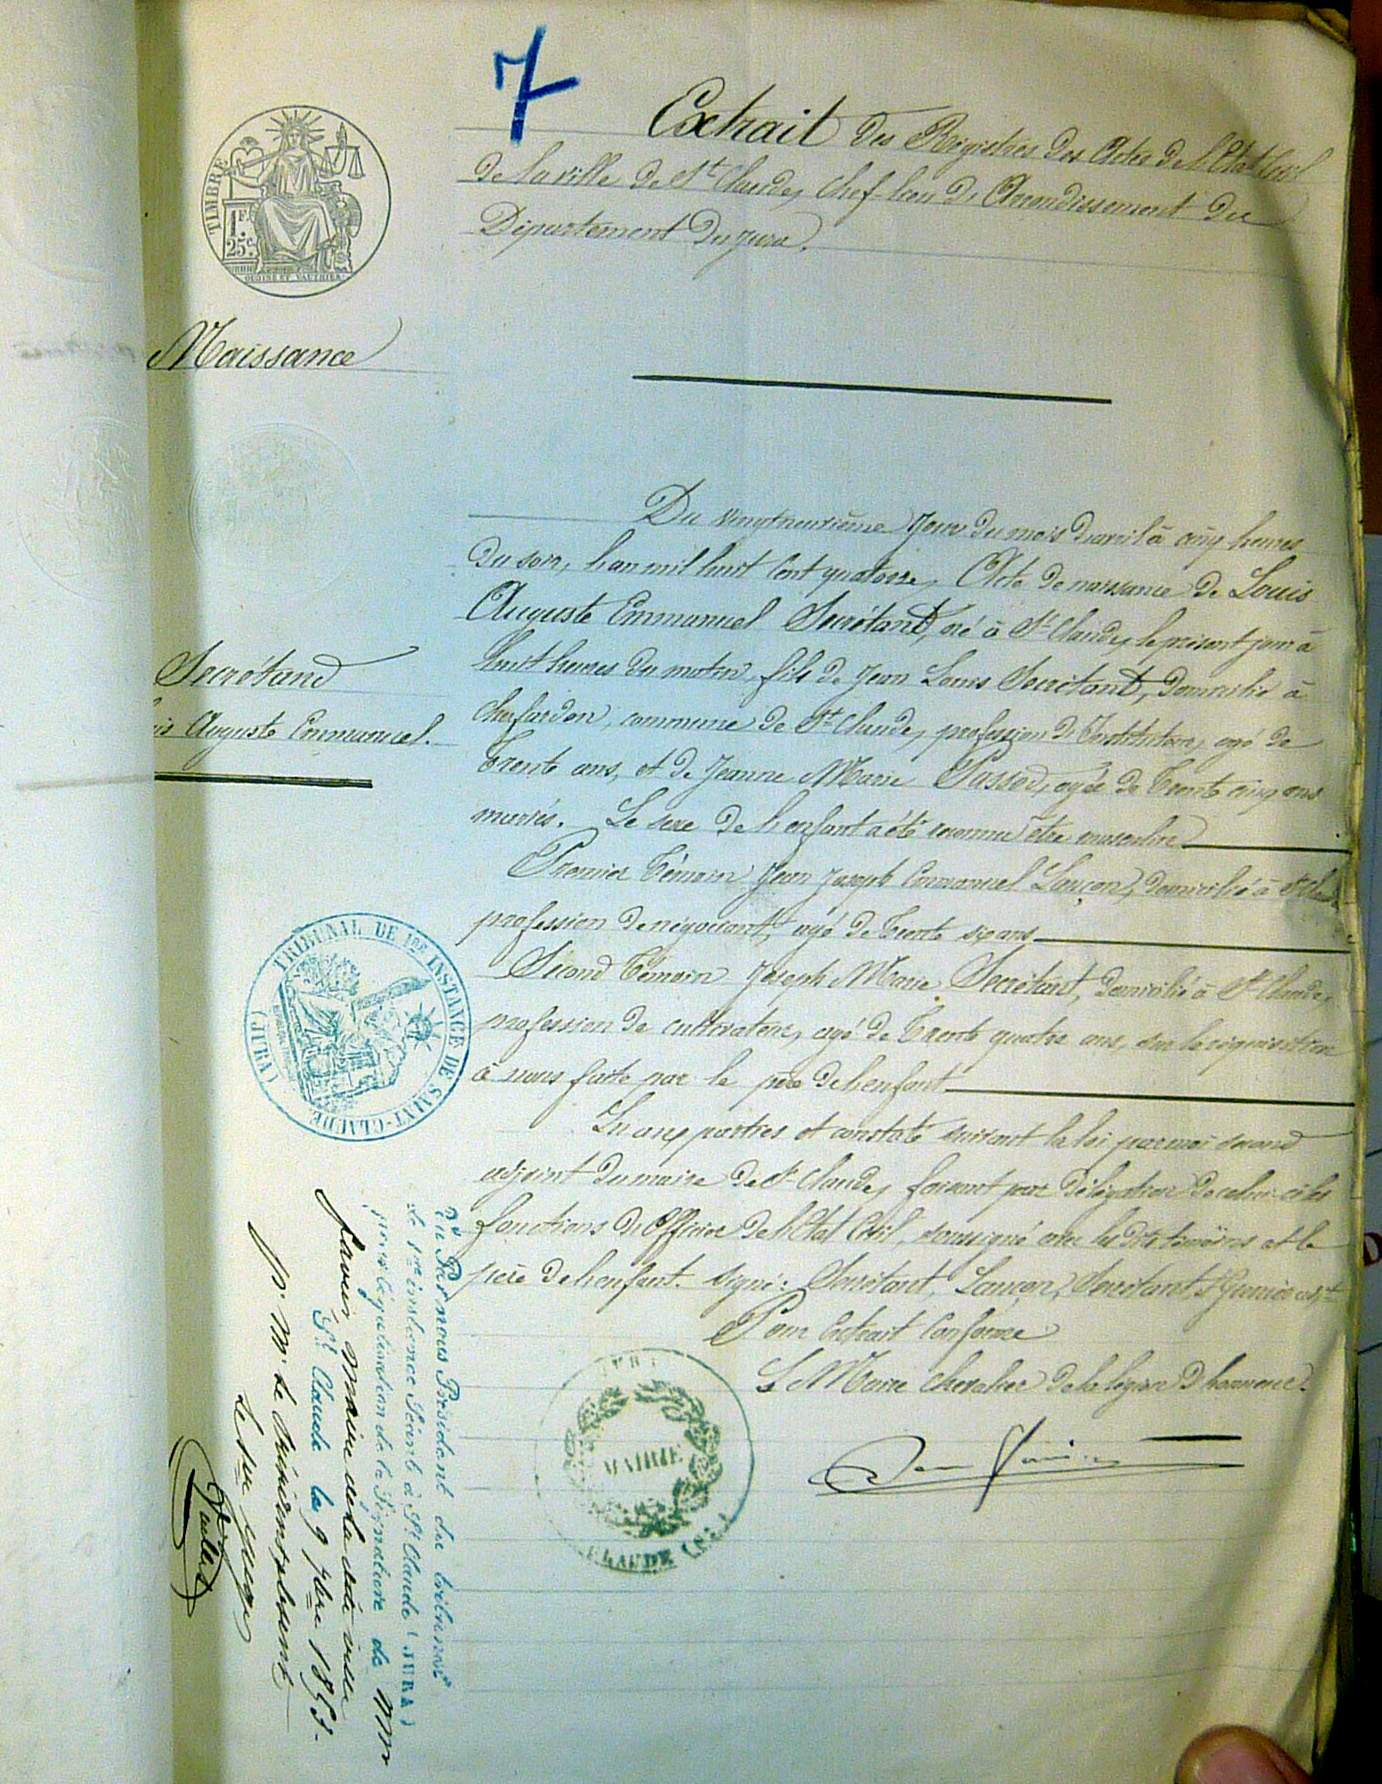 7
TIMBRE
1F.
25c.
Extrait des Régistres des Actes de l'Etat Civil
de la ville de St Claude, chef-lieu d'Arrondissement du
Département du Jura.
Naissance
Du vingt neuvième jour du mois d'avril à cinq heures
du soir, l'an mil huit cent quatorze, Acte de naissance de Louis
Auguste Emmanuel Secrétant, né à St Claude, le présent jour à
huit heures du matin, fils de Jean Louis Secrétant, domicilié à
commune de St Claude, profession d'Instituteur, agé de
trente ans, et de Jeanne Marie Passod, agée de trente cinq ans
mariés. Le sexe de l'enfant a été reconnu être masculin
Secrétand
Auguste Emmanuel.
Premier témoin Jean Joseph Emmanuel Lançon, domicilié à St Claude
profession de négociant, agé de trente six ans
Second témoin Joseph Marie Secrétant, domicilié à St Claude,
profession de cultivateur, agé de trente quatre ans, sur la réquisition
à nous faite par le père de l'enfant
Lu aux parties et constaté suivant la loi par moi second
adjoint du maire de St Claude, faisant par délégation de celui-ci les
fonctions d'Officier de l'Etat Civil, soussigné avec les dits témoins et le
père de l'enfant. Signé: Secrétant, Lançon, Secrétant
Pour Extrait Conforme
Le Maire chevalier de la légion d'honneur.
TRIBUNAL DE 1ere INSTANCE DE SAINT-CLAUDE
(JURA)
MAIRIE
CLAUDE
Vu Par nous Président du tribunal
de 1re instance Séant à St Claude (JURA)
pour légalisation de la Signature de Mr
maire de la dite ville
St Claude le 9 7bre 1853.
p. Mr le Président absent,
le 1er juge